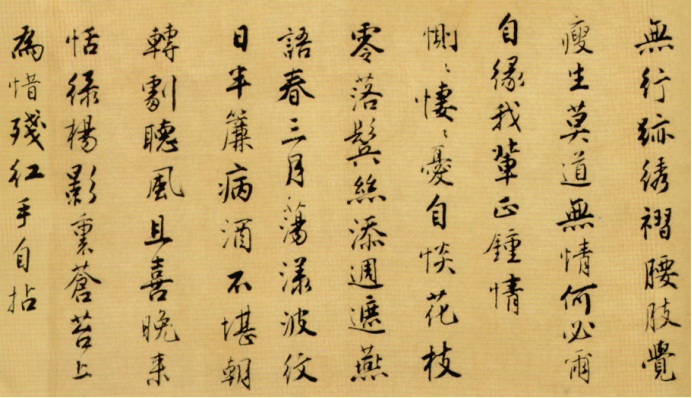 無行跡綉褶腰肢覺
瘦生莫道無情何必爾
自緣我輩正鍾情
惻〻悽〻憂自惔花枝
零落鬢絲添週遮燕
語春三月蕩漾波紋
日半簾病酒不堪朝
轉劇聽風且喜晚來
恬綠楊影裏蒼苔上
為惜殘紅手自拈